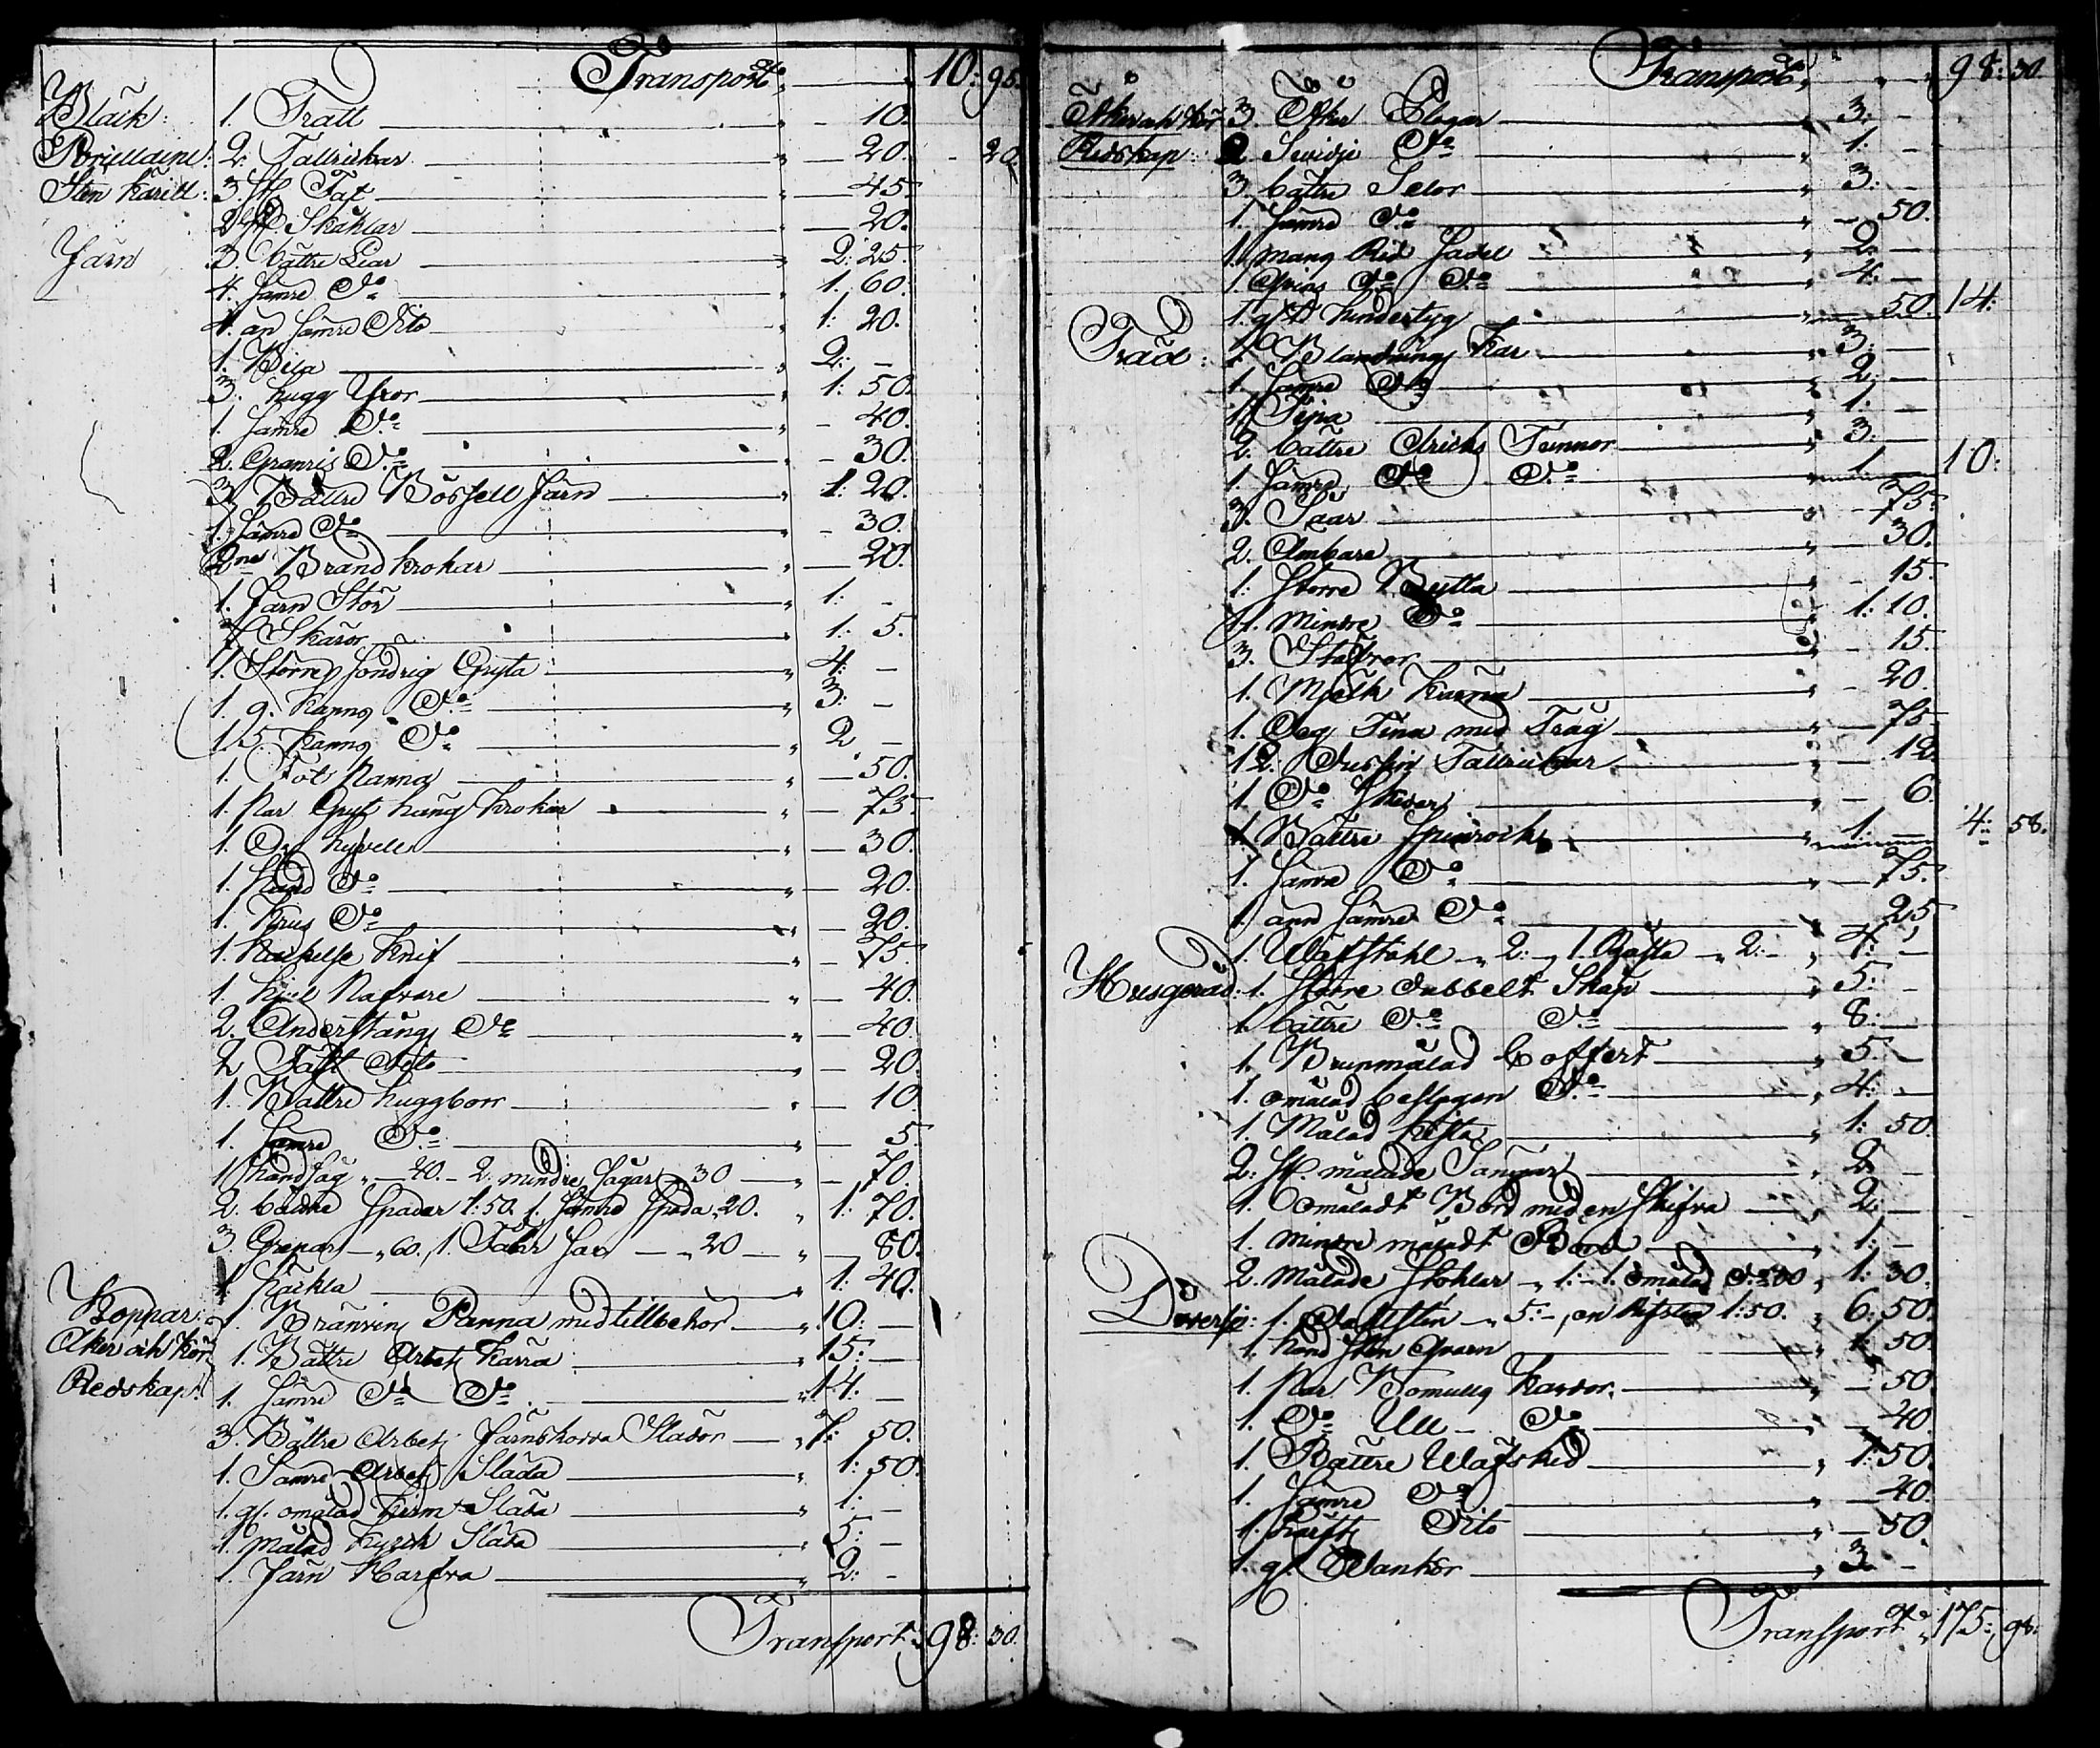 Transport 10: 95.
Bläck: 1. Tratt 10.
Porcellaine: 2. Tallrickar 20. 20.
Sten Käril: 3. st Fat 45.
2 st Skåhlar 20.
Järn 3. bättre Liar 2: 25.
4. sämre Do 1: 60.
4. än sämre Dito 1: 20.
1. Bila 2: -
3. hugg Yxor 1: 50.
1. sämre Do 40.
2. Granris Do 30.
3. Bättre Bössell Järn 1: 20.
1. sämre Do 30.
2ne Brand krokar 20.
1. Järn Stör 1: -
7 Skäror 1: 5.
1. Större söndrig Gryta 4: -
1. 9. Kanng Do 3: -
1. 5. Kanng Do 2 -
1. Fot Panna 50.
1. Par Gryt häng krokar 75.
1. Ox hyvell 30.
1. Hand Do 20.
1. Krus Do 20.
1. Hackelse Knif 75.
1. Hjul Nafvare 40.
2. Anderstångs Do 40.
2 Tält Dito 20.
1. Battre huggborr 10.
1. sämre Do 5.
1 handsåg 40. - 2. mindre sågar 30 70.
2. bättre Spadar 1:50. 1. sämre Spada 20. 1: 70.
3. Grepar 60. 1. Tälje 20 80.
1 häckla 1: 40.
Koppar: 1. Bränvins Panna med tillbehör 10: -
Åker åch Kör 1. Bättre Arbets Kärra 15: -
Redskap: 1. sämre Do Do 14: -
3. Bättre Arbets Järnskodda Slädor 7: 50.
1. Sämre Arbets Släda 1: 50.
1. gl. omålad Släda 1: -
1 målad Kyrck Släda 5: -
1. Järn Harfva 2: -
Transport 98: 30.
Transport 98: 30.
Åker åch Kör 3. Åker Plogar 3: -
Redskap: 2 Swidje Do 1: -
3 bättre Selar 3: -
1. sämre Do 50.
1. mans Rid Sadel 2: -
1. Qvins Do Do 4: -
1. gl. 50. 14:
Träd: 1. Blandnings Kar 3: -
1. sämre Do 2: -
1. Sipa 1: -
2. bättre Dricks Tunnor 3: -
1. sämre Do Do 1: - 10:
3. Såar 75.
2. Ambare 30.
1. Större Bytta 15.
11. Mindre Do 1: 10.
3. Stäfvor 15.
1. Mjölk Kärna 20.
1. Deg Tina med Tråg 75.
12. Dussin Tallrickar 12
1. Do Skedar 6.
1. Bättre Spinrock 1: - 4: 58.
1. sämre Do 75.
1. änn sämre Do 25
1. Wäfstohl 2: 1. Rästa 2: 4: -
Husgeråd: 1. Större dubbelt Skåp 5: -
1. bättre Do Do 8: -
1. Brunmålad Coffert 5: -
1. omålad beslagen Do 4: -
1. Målad kista 1: 50.
2: st. målade Sängar 2 -
1. Omåladt Bord med en Skifva 2: -
1. mindre måladt Bord 1: -
2. målade Stohlar 1: - 1. omålad Do 30 1: 30.
Diverse: 1. 5: - en 1:50. 6: 50.
1. Hand Sten Qvarn 1: 50.
1. Par Bomulls Kardor 50.
1. Do Ull Do 40.
1. Bättre Wäfsked 1: 50.
1. sämre Do 40.
1. Dito 50.
1. gl. 3 -
Transport 175: 98.